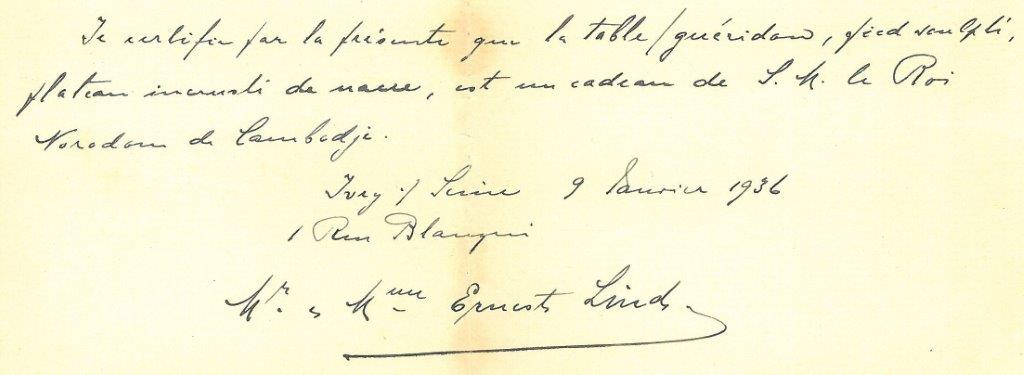 Je certifie par la présente que la table/guéridon, pied sculpté,
plateau incrusté de nacre, est un cadeau de S. M. le Roi
Norodom de Cambodje.
Ivry s/ Seine 9 Janvier 1936
1 Rue Blanqui
Mr. & Mme Ernest Lind